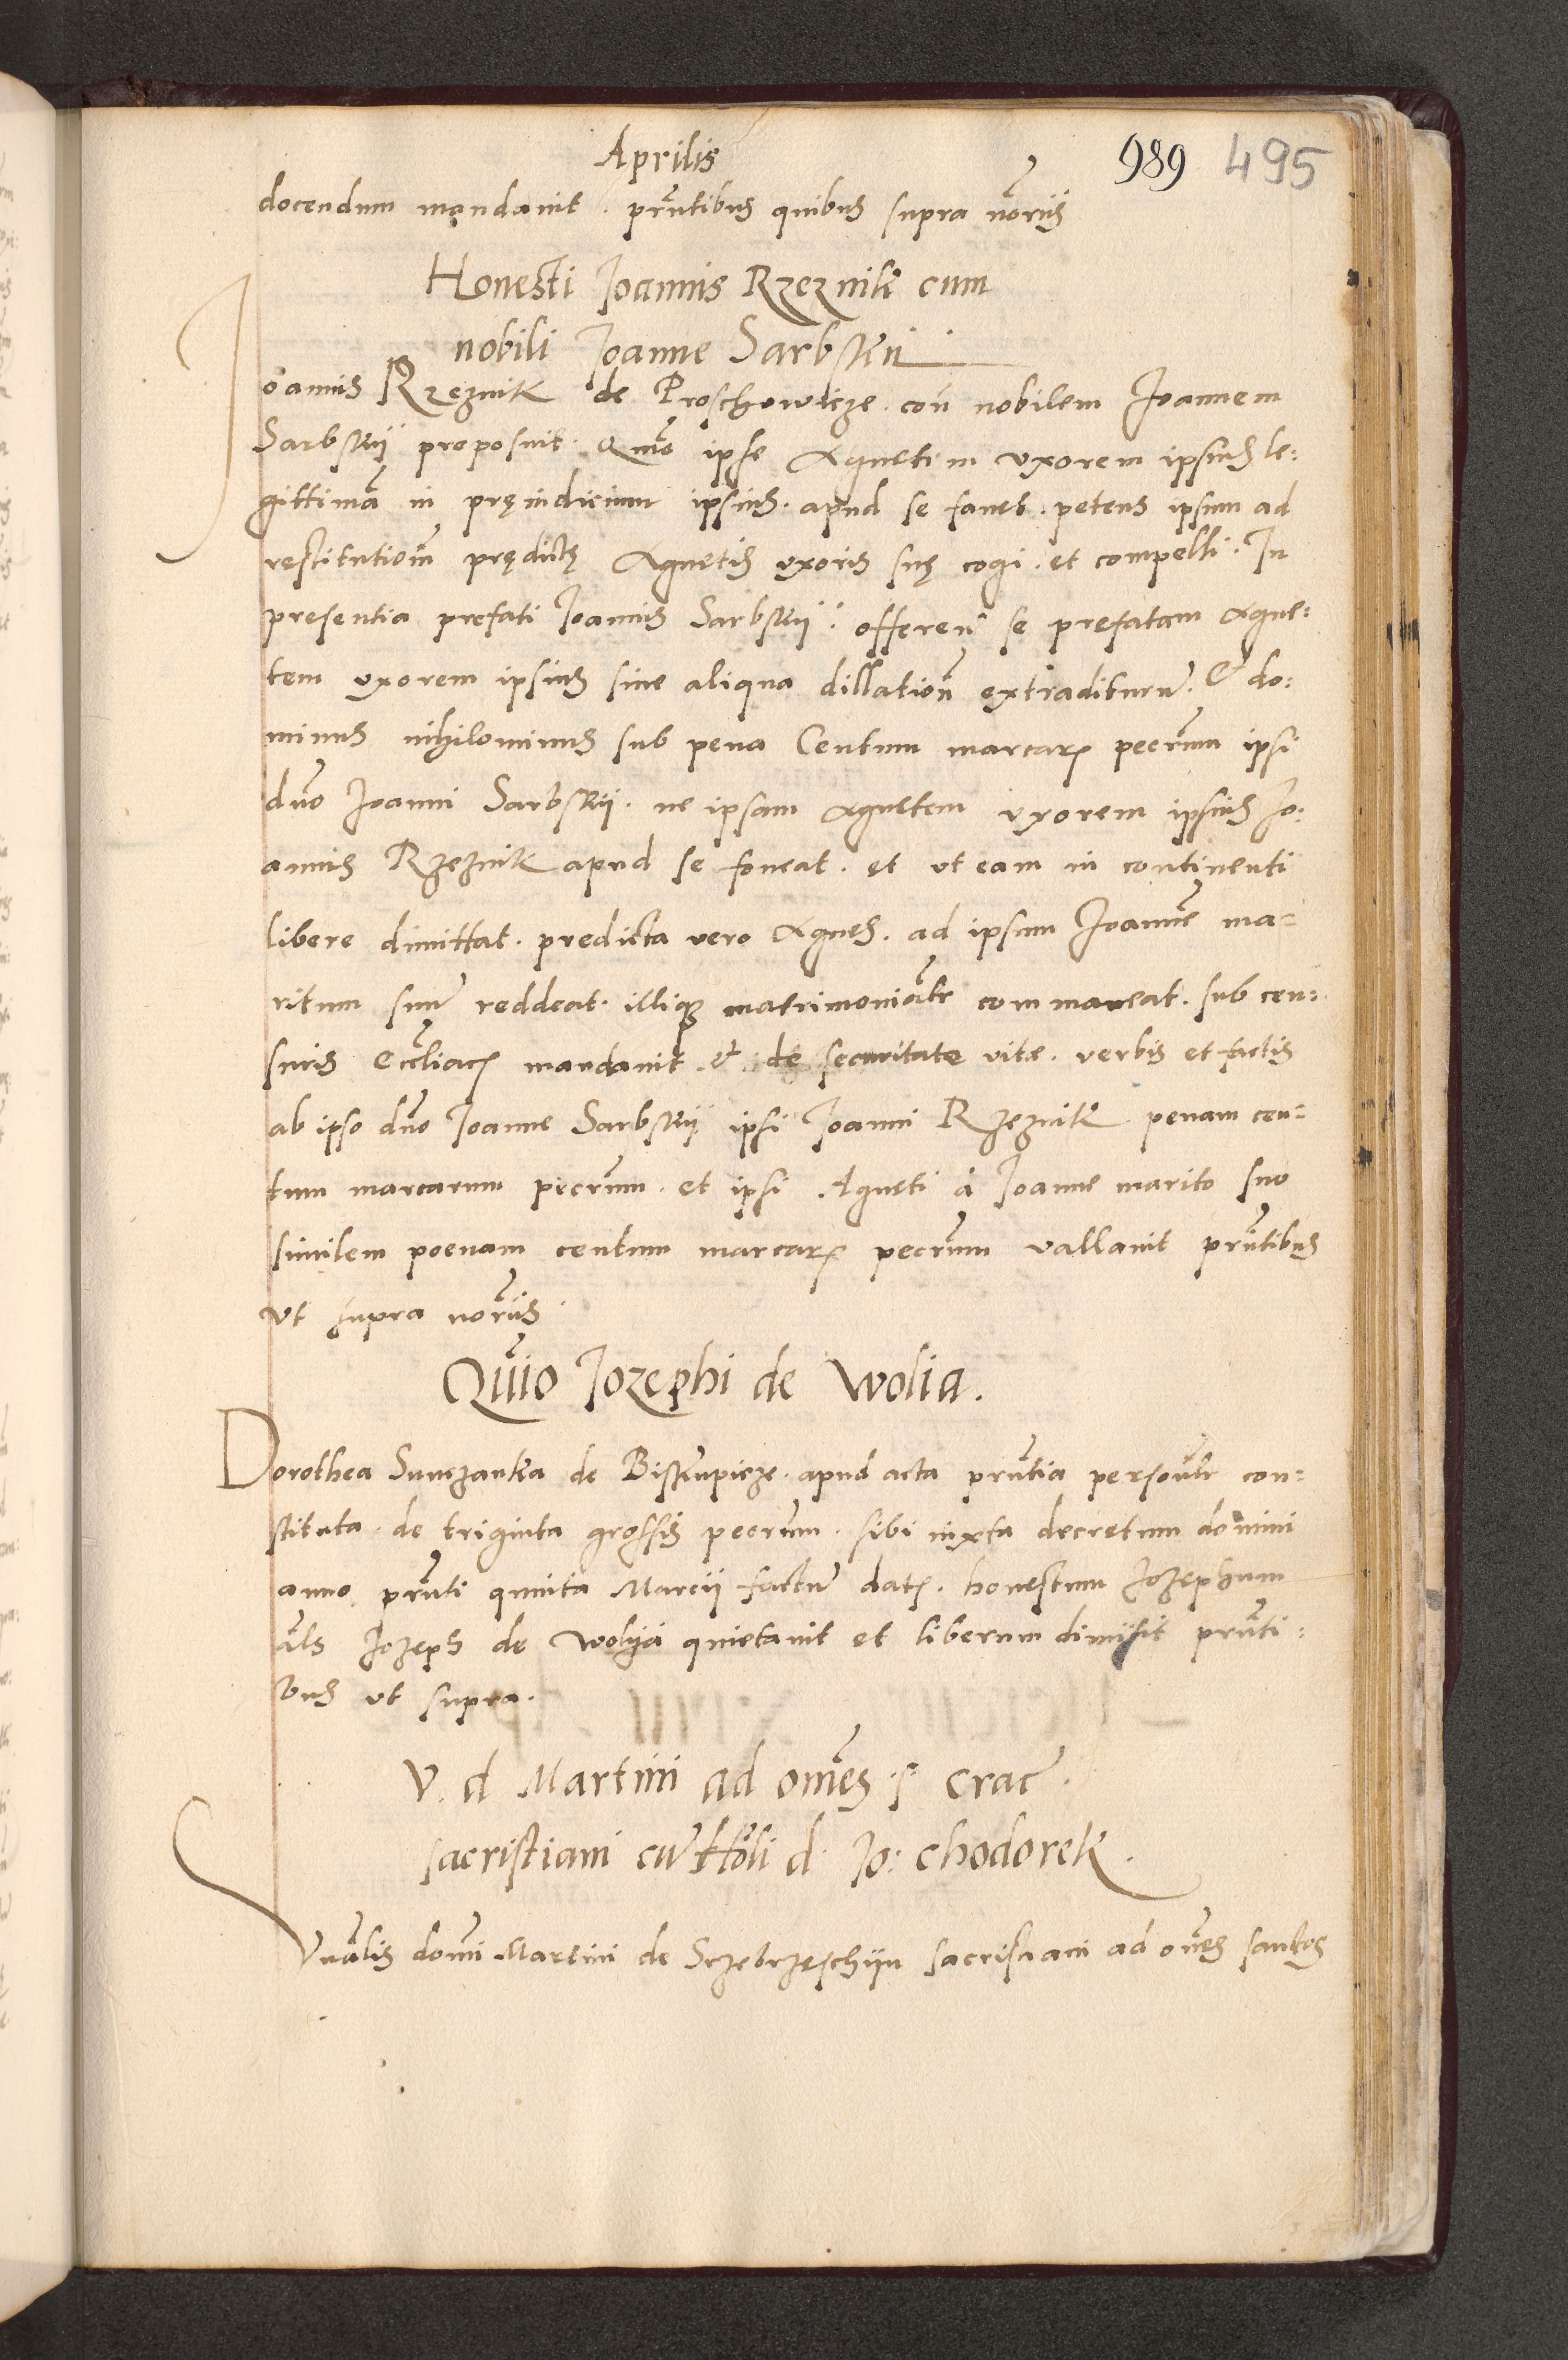 Aprilis
989 495
docendum mandavit. pr̃ntibus quibus supra nõriis
Honesti Joannis Rzeznik cum
nobili Joanne Sarbskÿ
Joannis Rzeznik de Proschowicze. con̄ nobilem Joannem
Sarbskÿ proposuit. Quõ ipse Agnetim uxorem ipsius le:
gittimã in pręiudicium ipsius. apud se fovet. petens ipsum ad
restitutioñ prędictę Agnetis uxoris suę cogi. et compelli. In
presentia prefati Joannis Sarbskÿ. offeren̄ se prefatam Agne:
tem uxorem ipsius sine aliqua dillatioñ extraditurũ. & do:
minus nihilominus sub pena Centum marcarꝝ pecr̃um ipsi
dño Joanni Sarbskÿ. ne ipsam Agnetem uxorem ipsius Jo:
annis Rzeznik apud se foveat. et ut eam in continenti
libere dimittat. predicta vero Agnes. ad ipsum Joannẽ ma-
ritum suũ reddeat. illiqꝫ matrimoniãlr commaneat. sub cen:
suris Ecc̃liacꝝ mandavit. & de securitate vitæ. verbis et factis
ab ipso dño Joanne Sarbskÿ ipsi Joanni Rzeznik penam cen:
tum marcarum pecr̃um. et ipsi Agneti à Joanne marito suo
similem poenam centum marcarꝝ pecr̃um vallavit pr̃ntibus
ut supra nõriis.
Qũio Jozephi de Wolia.
Dorothea Sunczanka de Biskupicze. apud acta pr̃ntia persoñlr con:
stituta. de triginta grossis pecr̃um. sibi iuxta decretum domini
anno pr̃nti quinta Marcii factũ datꝭ. honestum Jozephum
ãls Jozeph de Wolya quietavit et liberum dimisit pr̃nti:
bus ut supra.
V. d Martini ad om̃es s. crac̃.
sacristiani cũ Hõli d. Jo: Chodorek.
Vnãlis dom̃i Martini de Sczebrzeschÿn sacristiani ad om̃es sanctos